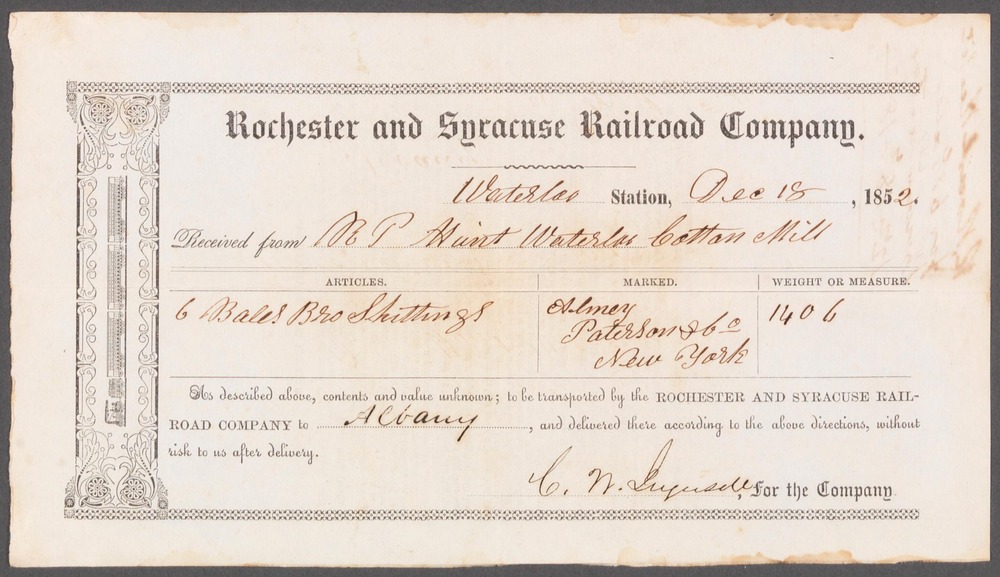 Rochester and Syracuse Railroad Company.
Waterloo Station, Dec 18, 1852.
Received from R P Hunt Waterloo Cotton Mill
ARTICLES. MARKED. WEIGHT OR MEASURE.
6 Bales Bro Shittings Almey 1406
Paterson & Co
New York
As described above, contents and value unknown; to be transported by the ROCHESTER AND SYRACUSE RAIL-
ROAD COMPANY to Albany, and delivered there according to the above directions, without
risk to us after delivery.
C. W. , For the Company